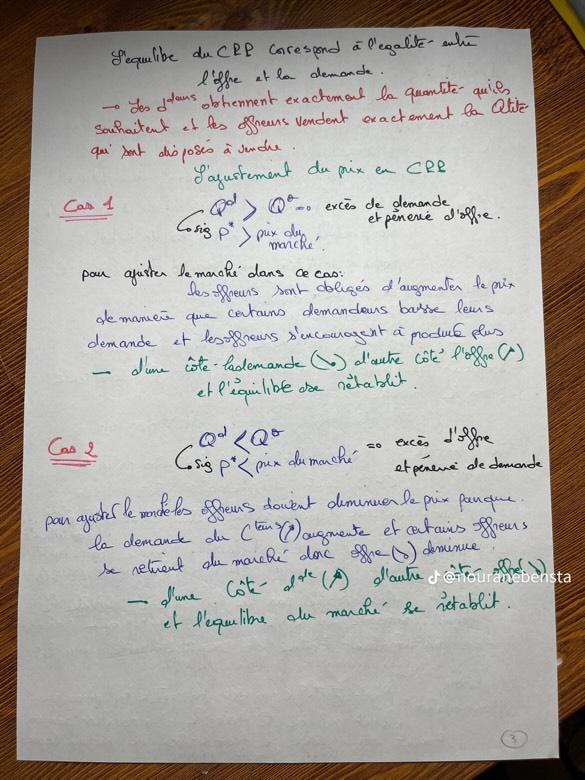 L'equilibe du CPP correspond à l'egalité entre
l'offre et la demande.
→ Les deurs obtiennent exactement la quantité qu'ils
souhaitent et les offreurs vendent exactement la Qtité
qu'ils sont disposés à vendre.
L'ajustement du prix en CPP
Cas 1
Qd > Qo => excés de demande
et pénerie d'offre.
sig P* > prix du
marché.
pour ajuster le marché dans ce cas:
les offreurs sont obligés d'augmenter le prix
de manière que certains demandeurs basse leurs
demande et les offreurs s'encouragent à produire plus
— d'une côté la demande (↘) d'autre côté l'offre (↗)
et l'équilibre se rétablit.
Cas 2
Qd < Qo
=> excés d'offre
sig P* < prix du marché
et pénerie de demande
pour ajuster le marché les offreurs doivent diminuer le prix parque
la demande du Cteurs (↗) augmente et certains offreurs
se retirent du marché donc offre (↘) diminue.
— d'une côté dde (↗) d'autre côté offre (↘)
@nouranebensta
et l'equilibre du marché se rétablit.
3